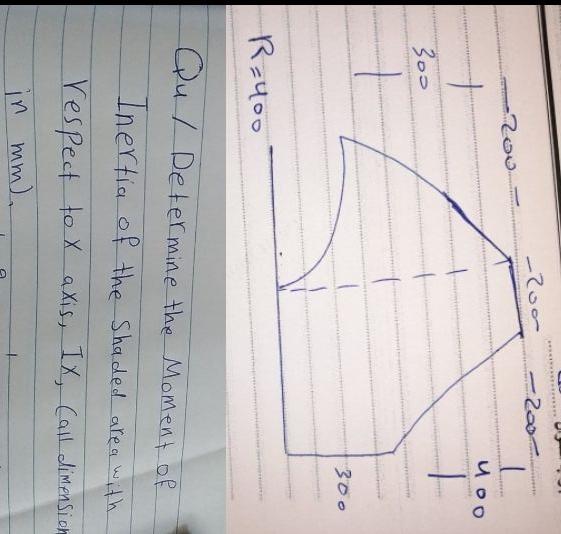 -200-
-200-
-200-
300
400
300
R=400
Qu/ Determine the Moment of
Inertia of the shaded area with
respect to X axis, Ix, (all dimension
in mm).